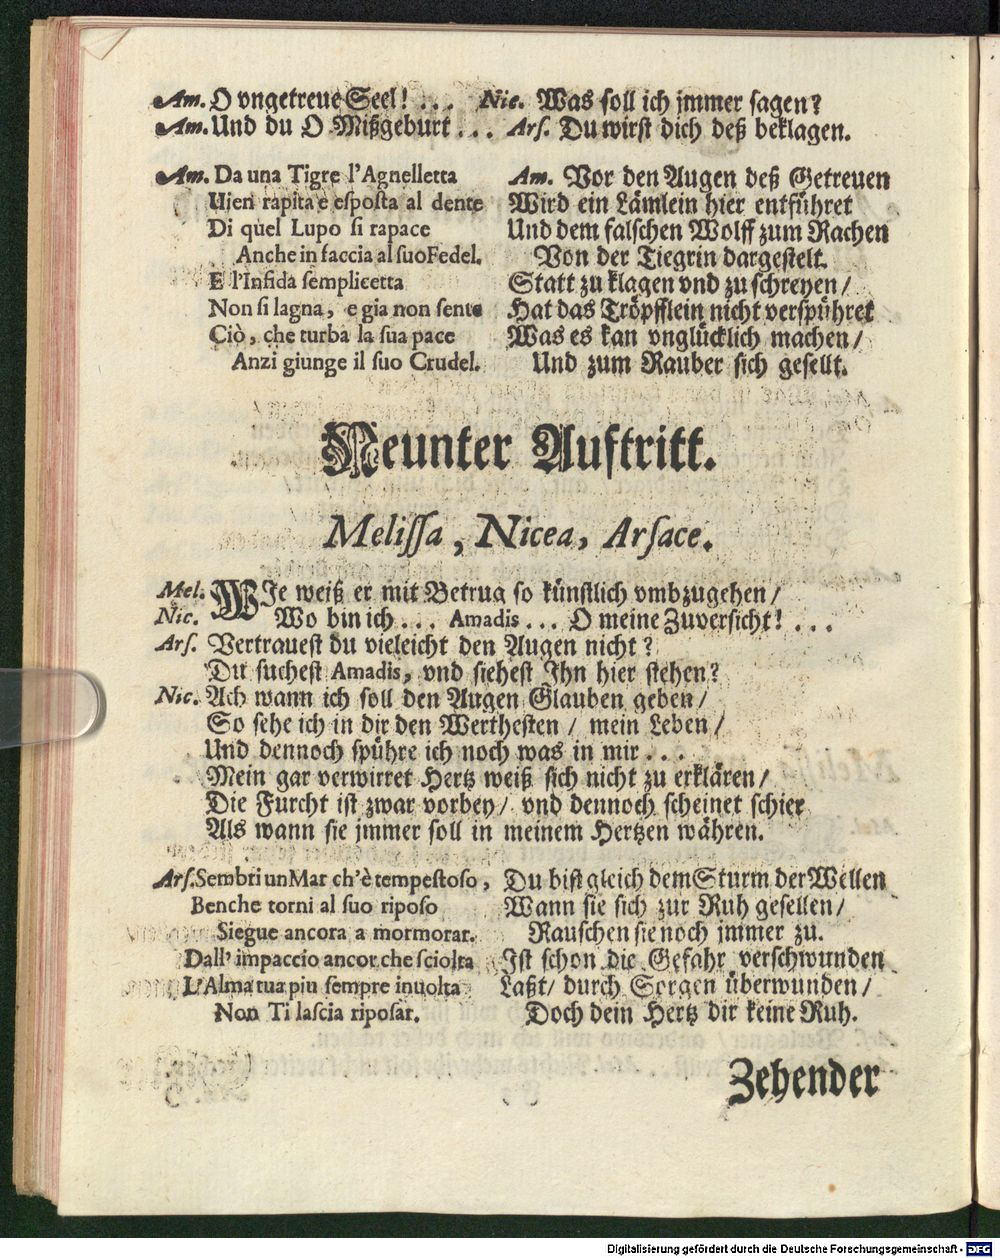 Am. O vngetreue Seel! . . . Nic. Was soll ich jmmer sagen?
Am. Und du O Mißgeburt . . . Ars. Du wirst dich deß beklagen.
Am. Da una Tigre l'Agnelletta
Uien rapita e esposta al dente
Di quel Lupo si rapace
Anche in faccia al suo Fedel.
E l'Infida semplicetta
Non si lagna, e gia non sente
Ciò, che turba la sua pace
Anzi giunge il suo Crudel.
Am. Vor den Augen deß Getreuen
Wird ein Lämlein hier entführet
Und dem falschen Wolff zum Rachen
Von der Tiegrin dargestelt.
Statt zu klagen vnd zu schreyen /
Hat das Tröpfflein nicht verspühret
Was es kan vnglücklich machen /
Und zum Rauber sich gesellt.
Neunter Auftritt.
Melissa, Nicea, Arsace.
Mel. WJe weiß er mit Betrug so künstlich vmbzugehen /
Nic. Wo bin ich . . . Amadis . . . O meine Zuversicht! . . .
Ars. Vertrauest du vieleicht den Augen nicht?
Du suchest Amadis, vnd siehest Jhn hier stehen?
Nic. Ach wann ich soll den Augen Glauben geben /
So sehe ich in dir den Werthesten / mein Leben /
Und dennoch spühre ich noch was in mir . . .
Mein gar verwirret Hertz weiß sich nicht zu erklären /
Die Furcht ist zwar vorbey / vnd dennoch scheinet schier
Als wann sie jmmer soll in meinem Hertzen währen.
Ars. Sembri un Mar ch'è tempestoso,
Benche torni al suo riposo
Siegue ancora a mormorar.
Dall' impaccio ancor che sciolta
L'Alma tua piu sempre inuolta
Non Ti lascia riposar.
Du bist gleich dem Sturm der Wellen
Wann sie sich zur Ruh gesellen /
Rauschen sie noch jmmer zu.
Jst schon die Gefahr verschwunden
Laßt / durch Sorgen überwunden /
Doch dein Hertz dir keine Ruh.
Zehender
Digitalisierung gefördert durch die Deutsche Forschungsgemeinschaft - DFG